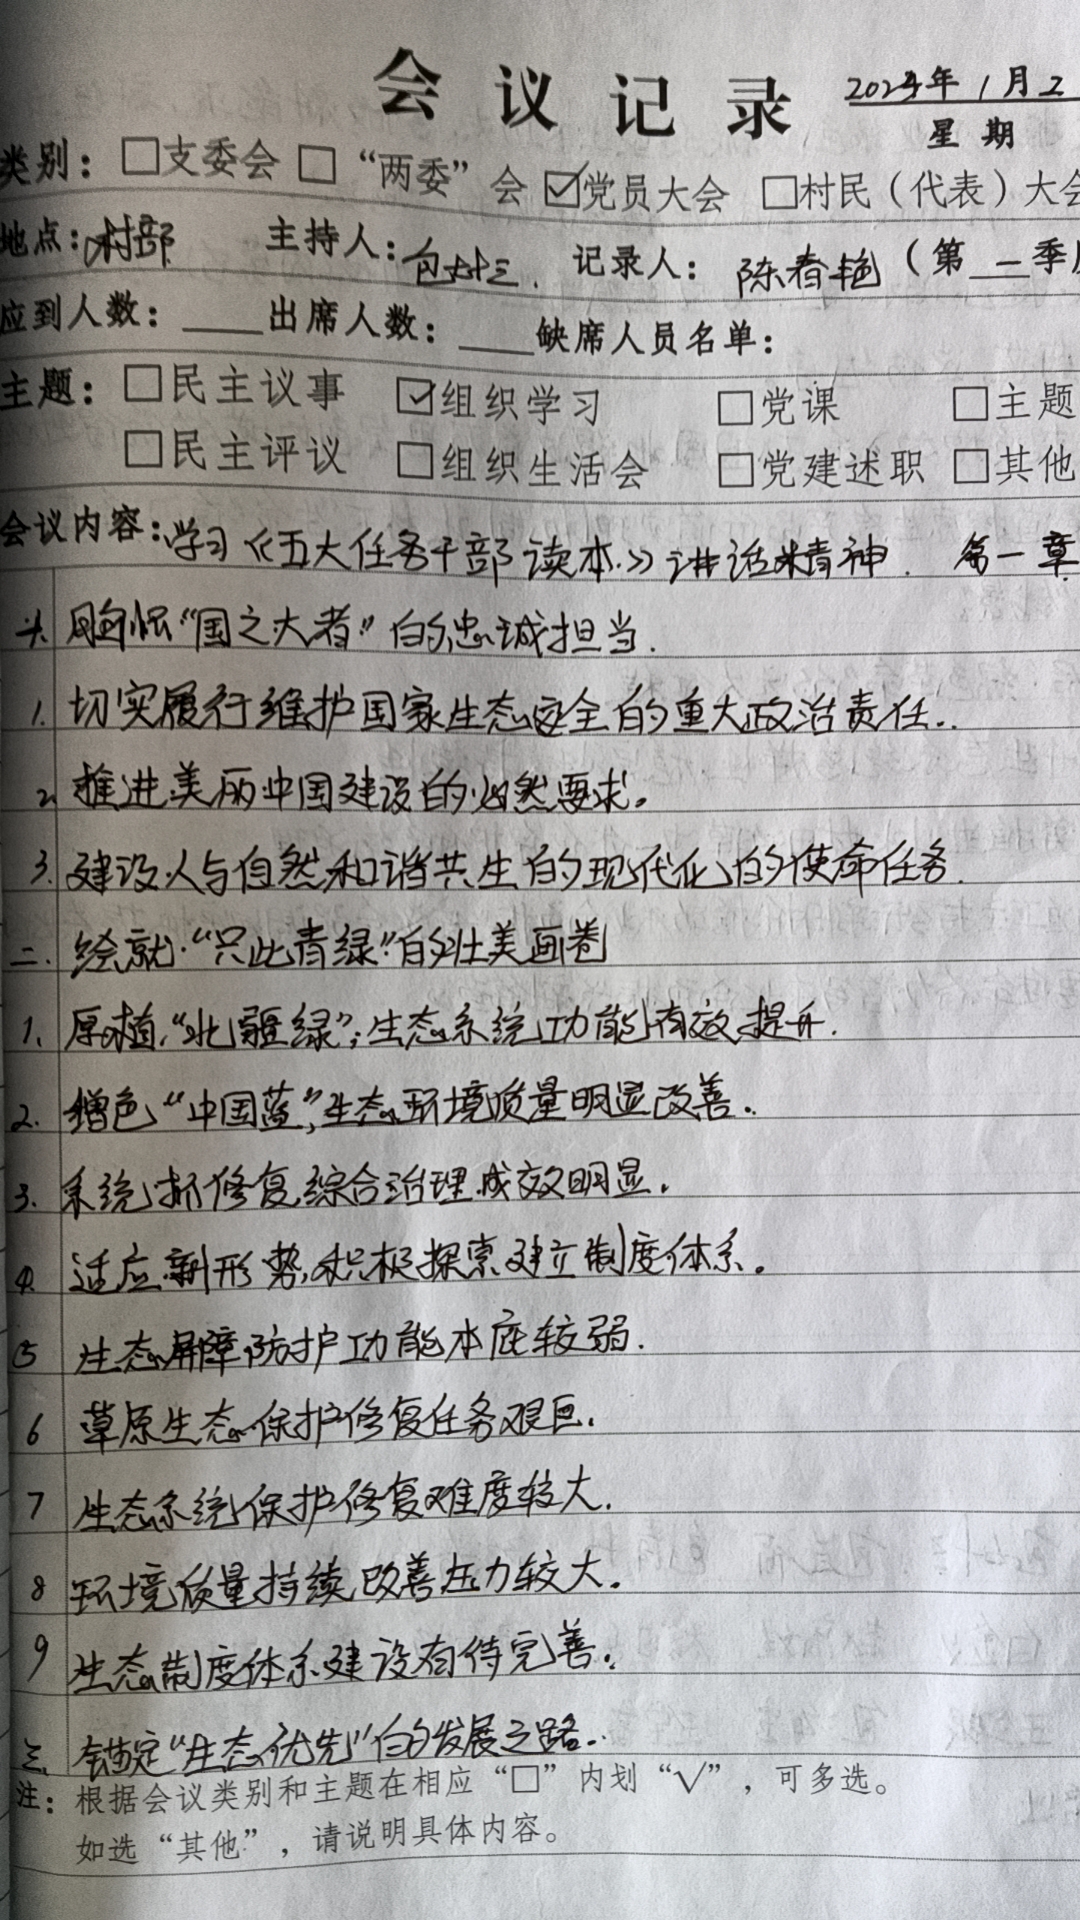 会议记录
年1月2
星期
类别：□支委会 □“两委”会 ☑党员大会 □村民（代表）大会
地点：村部 主持人： 记录人：陈春艳（第一季度
应到人数：____出席人数：____缺席人员名单：
主题：□民主议事 ☑组织学习 □党课 □主题
□民主评议 □组织生活会 □党建述职 □其他
会议内容：学习《五大任务干部读本》讲话精神. 第一章
胸怀“国之大者”的忠诚担当.
1. 切实履行维护国家生态安全的重大政治责任..
2. 推进美丽中国建设的必然要求。
3. 建设人与自然和谐共生的现代化的使命任务.
二. 绘就“只此青绿”的壮美画卷
1、厚植“北疆绿”；生态系统功能有效提升.
2. 增色“中国蓝”，生态环境质量明显改善.
3. 系统抓修复综合治理成效明显.
4. 适应新形势，积极探索建立制度体系.
5 生态屏障防护功能本底较弱.
6 草原生态保护修复任务艰巨.
7 生态系统保护修复难度较大.
8 环境质量持续改善压力较大.
9 生态制度体系建设有待完善.
三. 锚定“生态优先”的发展之路..
注：根据会议类别和主题在相应“□”内划“√”，可多选。
如选“其他”，请说明具体内容。